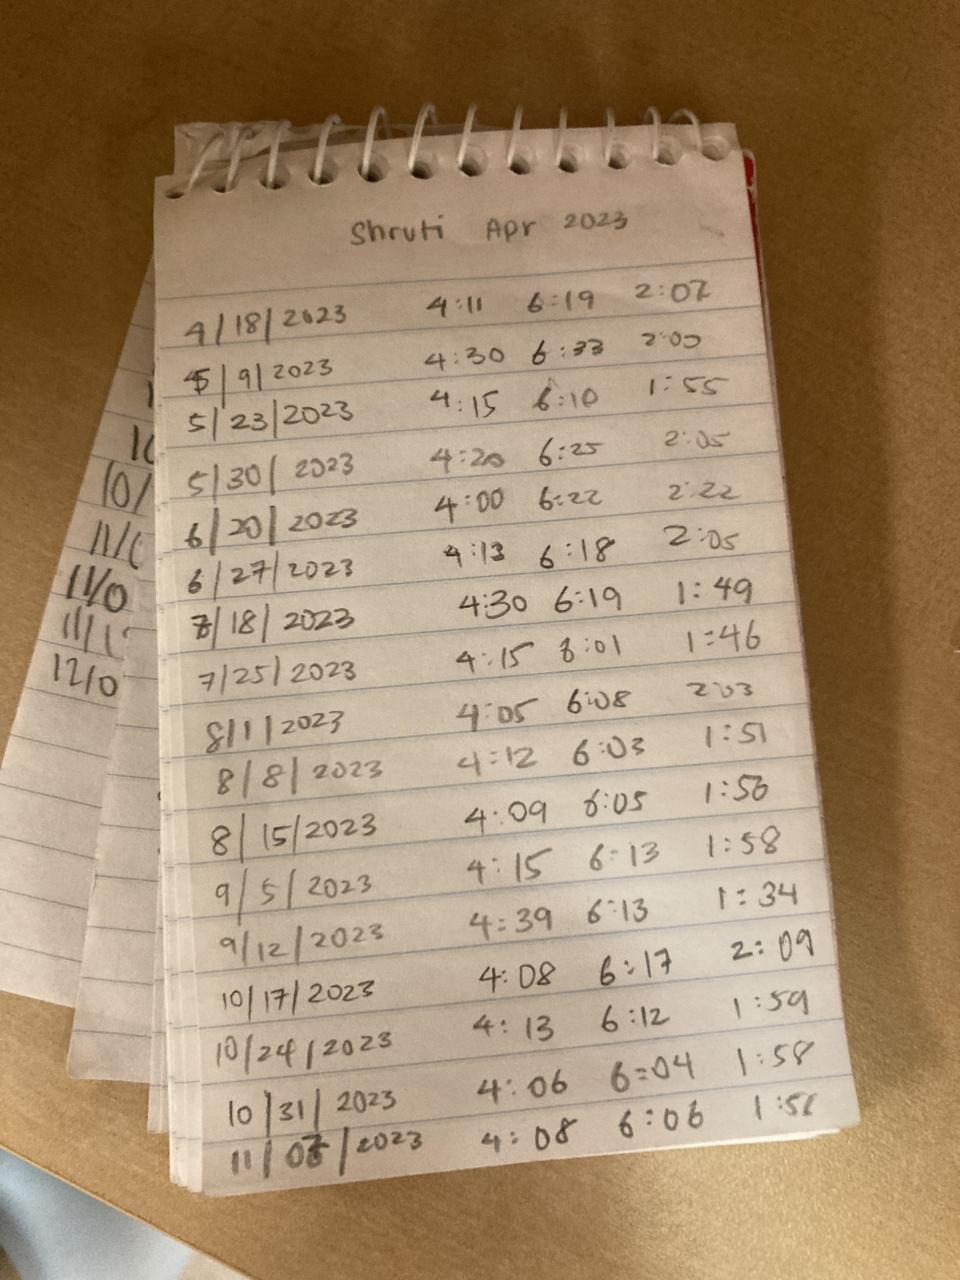 Shruti Apr 2023
4/18/2023 4:11 6:19 2:07
5/9/2023 4:30 6:33 2:00
5/23/2023 4:15 6:10 1:55
5/30/2023 4:20 6:25 2:05
6/20/2023 4:00 6:22 2:22
6/27/2023 4:13 6:18 2:05
7/18/2023 4:30 6:19 1:49
7/25/2023 4:15 6:01 1:46
8/1/2023 4:05 6:08 2:03
8/8/2023 4:12 6:03 1:51
8/15/2023 4:09 6:05 1:56
9/5/2023 4:15 6:13 1:58
9/12/2023 4:39 6:13 1:34
10/17/2023 4:08 6:17 2:09
10/24/2023 4:13 6:12 1:59
10/31/2023 4:06 6:04 1:58
11/07/2023 4:08 6:06
10/
11/0
11/1
12/0